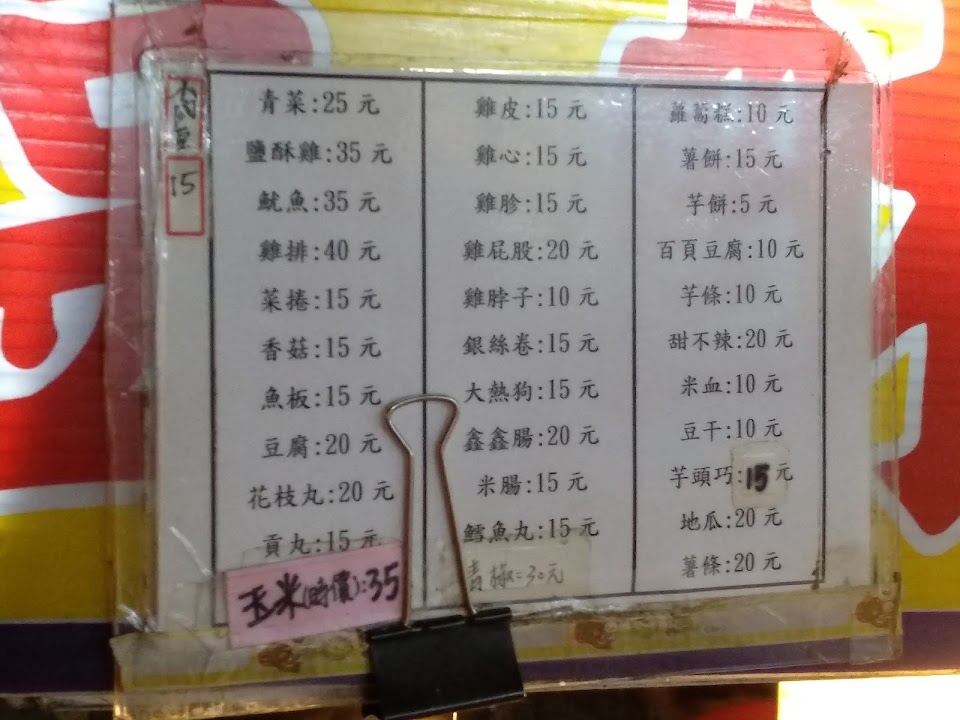 15
青菜:25 元
鹽酥雞:35 元
魷魚:35 元
雞排:40 元
菜捲:15 元
香菇:15 元
魚板:15 元
豆腐:20 元
花枝丸:20 元
貢丸:15 元
玉米(時價):35
雞皮:15 元
雞心:15 元
雞胗:15 元
雞屁股:20 元
雞脖子:10 元
銀絲卷:15 元
大熱狗:15 元
鑫鑫腸:20 元
米腸:15 元
鱈魚丸:15 元
青椒=30元
蘿蔔糕:10 元
薯餅:15 元
芋餅:5 元
百頁豆腐:10 元
芋條:10 元
甜不辣:20 元
米血:10 元
豆干:10 元
芋頭巧:15 元
地瓜:20 元
薯條:20 元